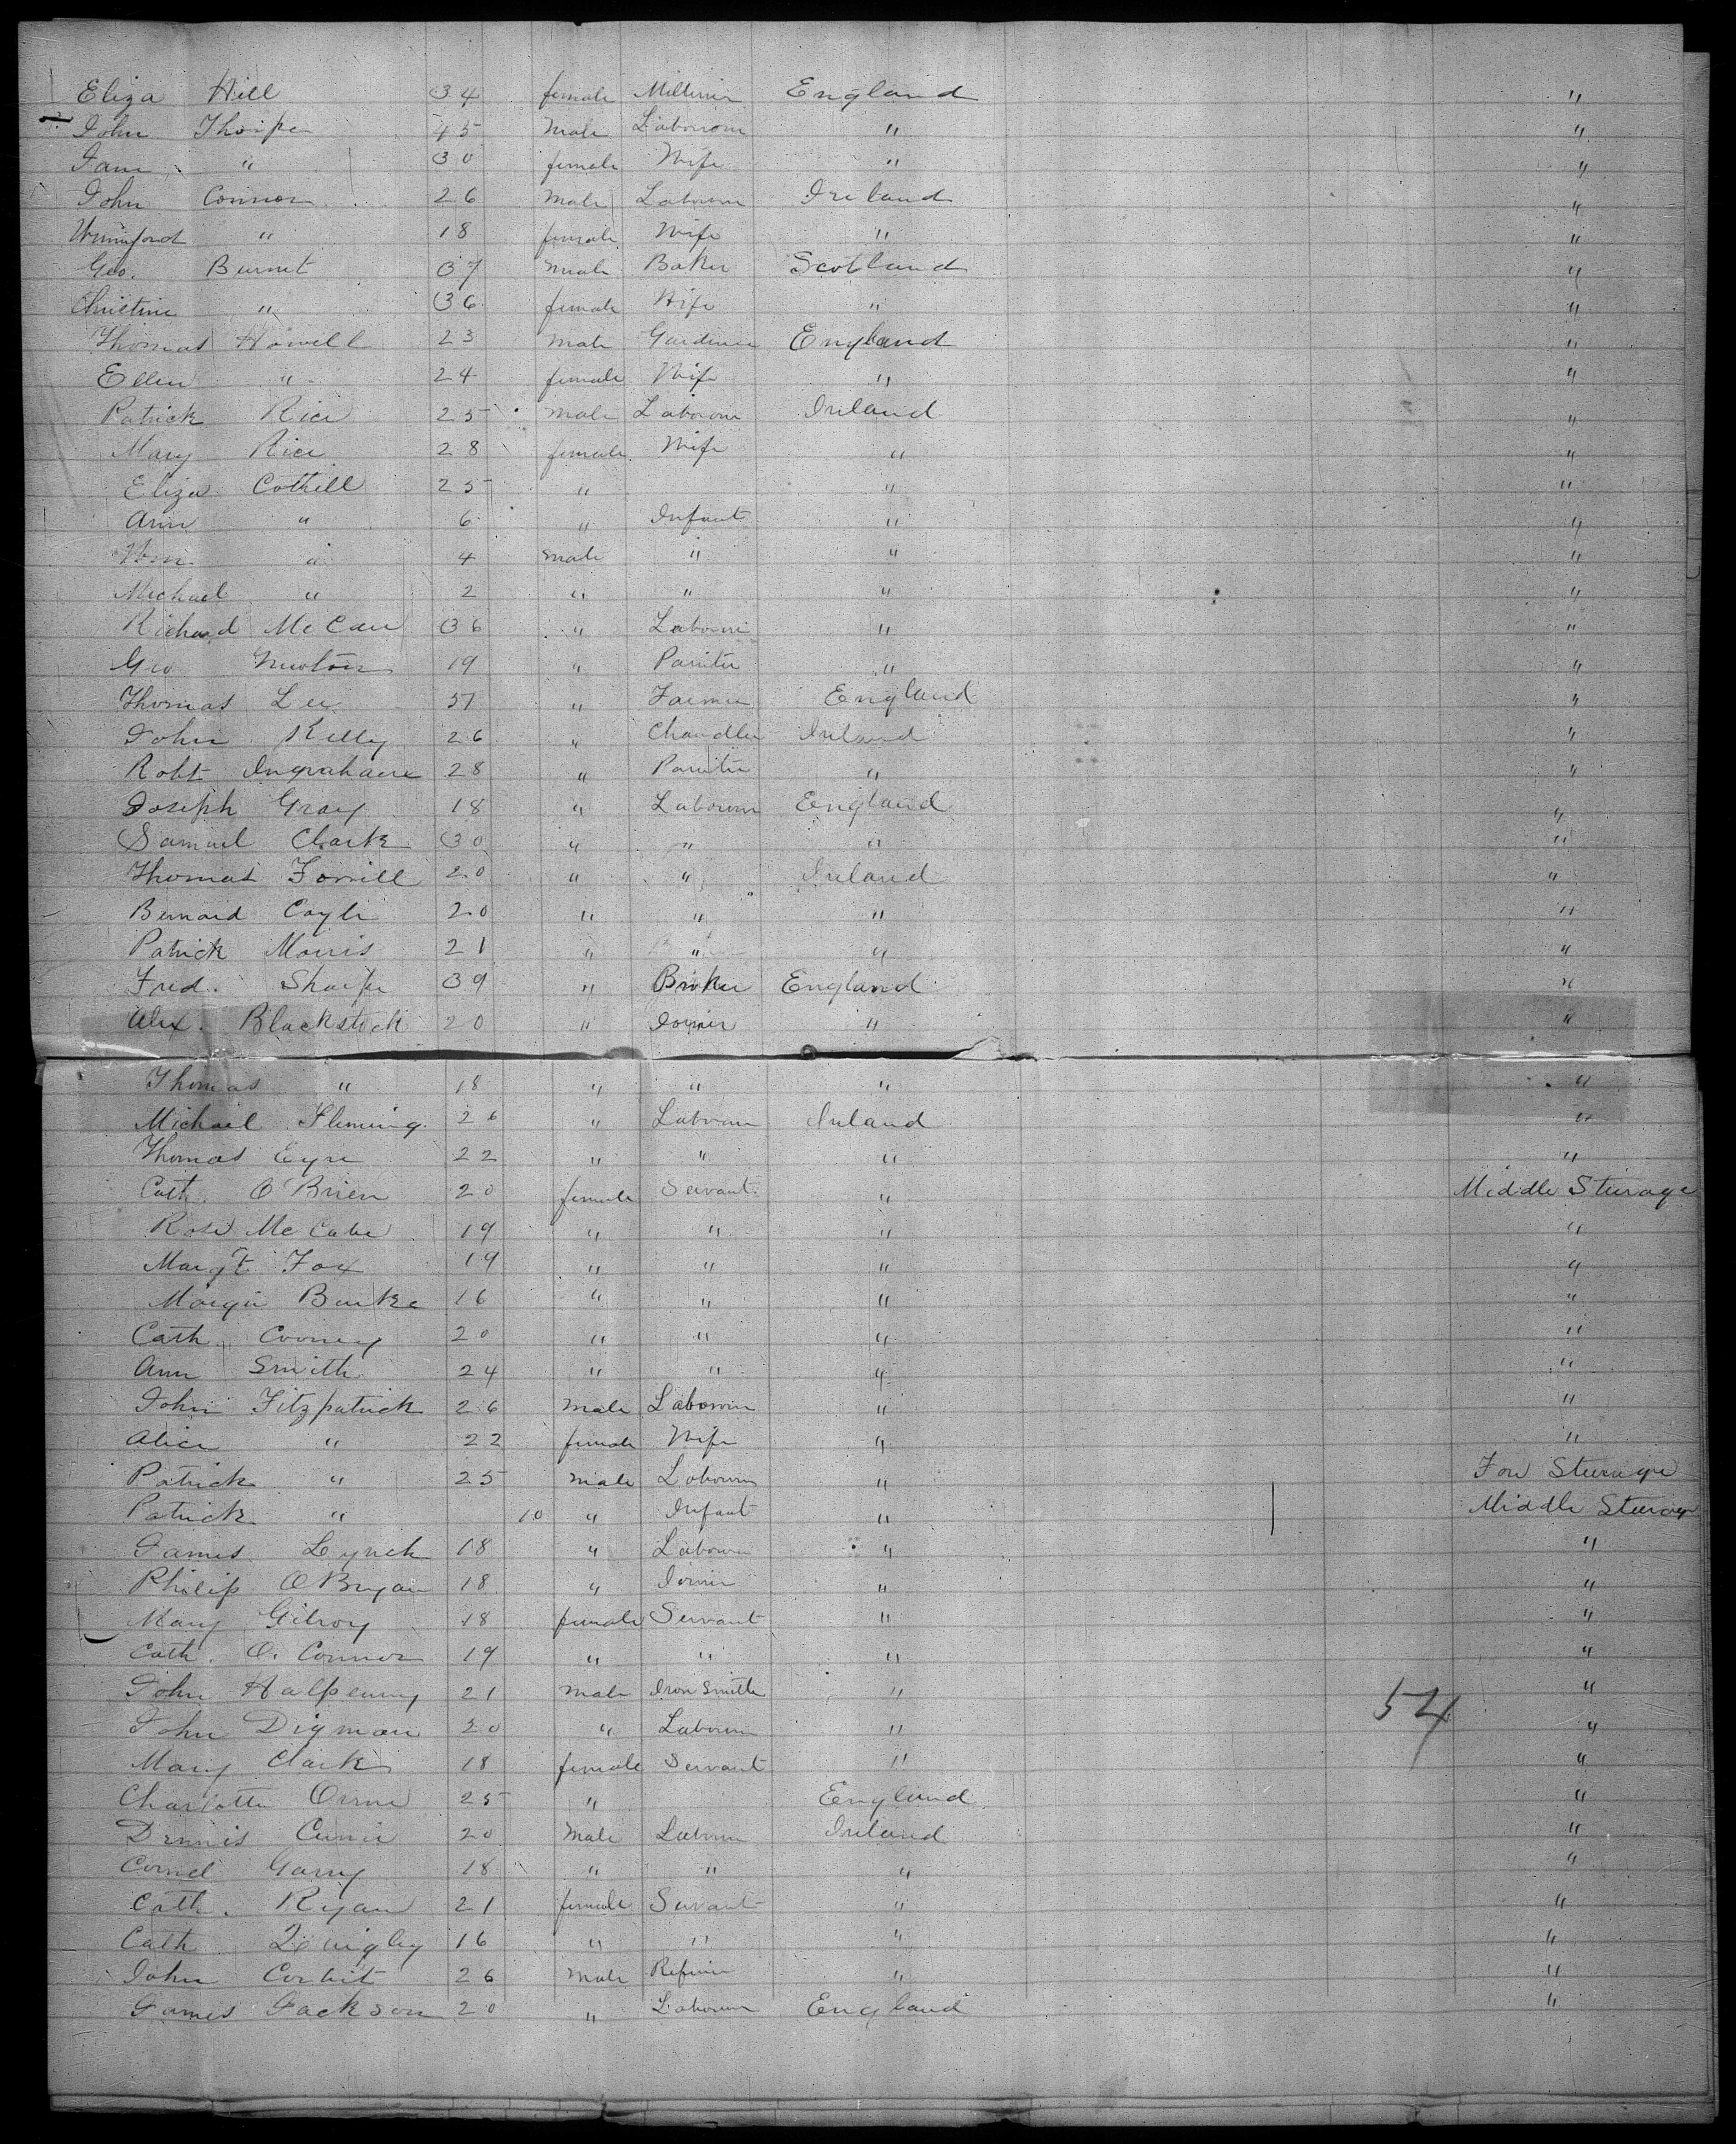 Eliza Hill 34 female Milliner England "
John Thorpe 45 Male Labourer " "
Jane " 30 female Wife " "
John Connor 26 Male Labourer Ireland "
Winniford " 18 female Wife " "
Geo. Burnet 37 Male Baker Scotland "
Christine " 36 female Wife " "
Thomas Howell 23 Male Gardiner England "
Ellen " 24 female Wife " "
Patrick Rice 25 male Labourer Ireland "
Mary Rice 28 female Wife " "
Eliza Cottell 25 " " "
Ann " 6 " Infant " "
Wm. " 4 male " " "
Michael " 2 " " " "
Richard McCan 36 " Labourer " "
Geo Newton 19 " Painter " "
Thomas Lee 57 " Farmer England "
John Kelly 26 " Chandler Ireland "
Robt Ingrahame 28 " Painter " "
Joseph Gray 18 " Labourer England "
Samuel Clark 30 " " " "
Thomas Forrill 20 " " Ireland "
Bernard Coyle 20 " " " "
Patrick Morris 21 " " " "
Fred. Sharpe 39 " Broker England "
Alex. Blackstock 20 " Joiner " "
Thomas " 18 " " " "
Michael Fleming 26 " Labourer Ireland "
Thomas Eyre 22 " " " "
Cath. O'Brien 20 female Servant " Middle Steerage
Rose McCabe 19 " " " "
Margt Fox 19 " " " "
Margie Burke 16 " " " "
Cath. Cooney 20 " " " "
Ann Smith 24 " " " "
John Fitzpatrick 26 Male Labourer " "
Alice " 22 female Wife " "
Patrick " 25 Male Labourer " Fore Steerage
Patrick " 10 " Infant " Middle Steerage
James Lynch 18 " Labourer " "
Philip O'Bryan 18 " Joiner " "
Mary Gilroy 18 female Servant " "
Cath. O. Connor 19 " " " "
John Halpenny 21 Male Iron Smith " "
54
John Digman 20 " Labourer " "
Mary Clark 18 female Servant " "
Charlotte Orme 25 " England "
Dennis Currie 20 Male Labourer Ireland "
Cornel Garry 18 " " " "
Cath. Ryan 21 female Servant " "
Cath Quigley 16 " " " "
John Corbit 26 Male Refiner " "
James Jackson 20 " Labourer England "